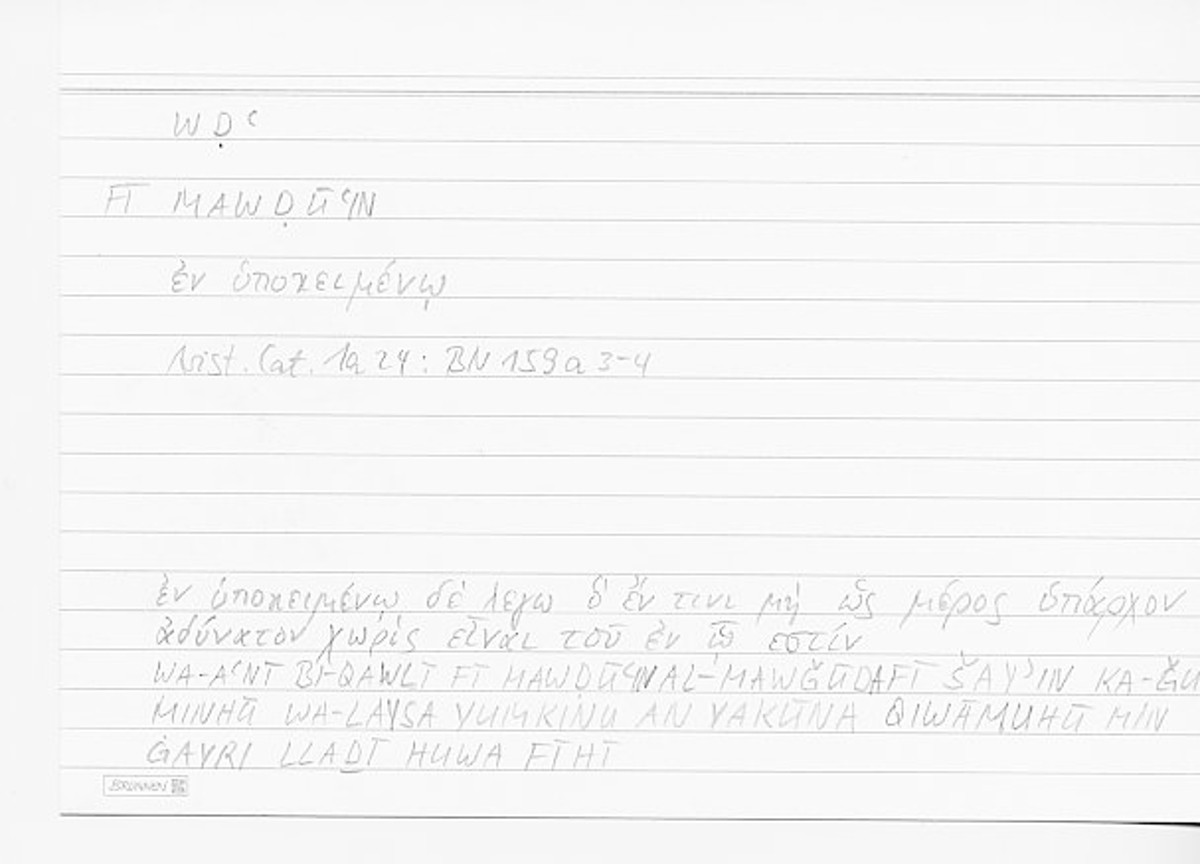 W Ḍ ʿ
FĪ MAWḌŪʿIN
ἐν ὑποκειμένῳ
Arist. Cat. 1a 24 : BN 159 a 3-4
ἐν ὑποκειμένῳ δὲ λεγω ὃ ἔν τινι μὴ ὡς μέρος ὑπάρχον
ἀδύνατον χωρὶς εἶναι τοῦ ἐν ᾧ εστίν
WA-AʿNĪ BI-QAWLĪ FĪ MAWḌŪʿIN AL-MAWǦŪDA FĪ ŠAYʾIN KA-ǦU
MINHŪ WA-LAYSA YUMKINU AN YAKŪNA QIWĀMUHŪ MIN
ĠAYRI LLAḎĪ HUWA FĪHĪ
BRUNNEN